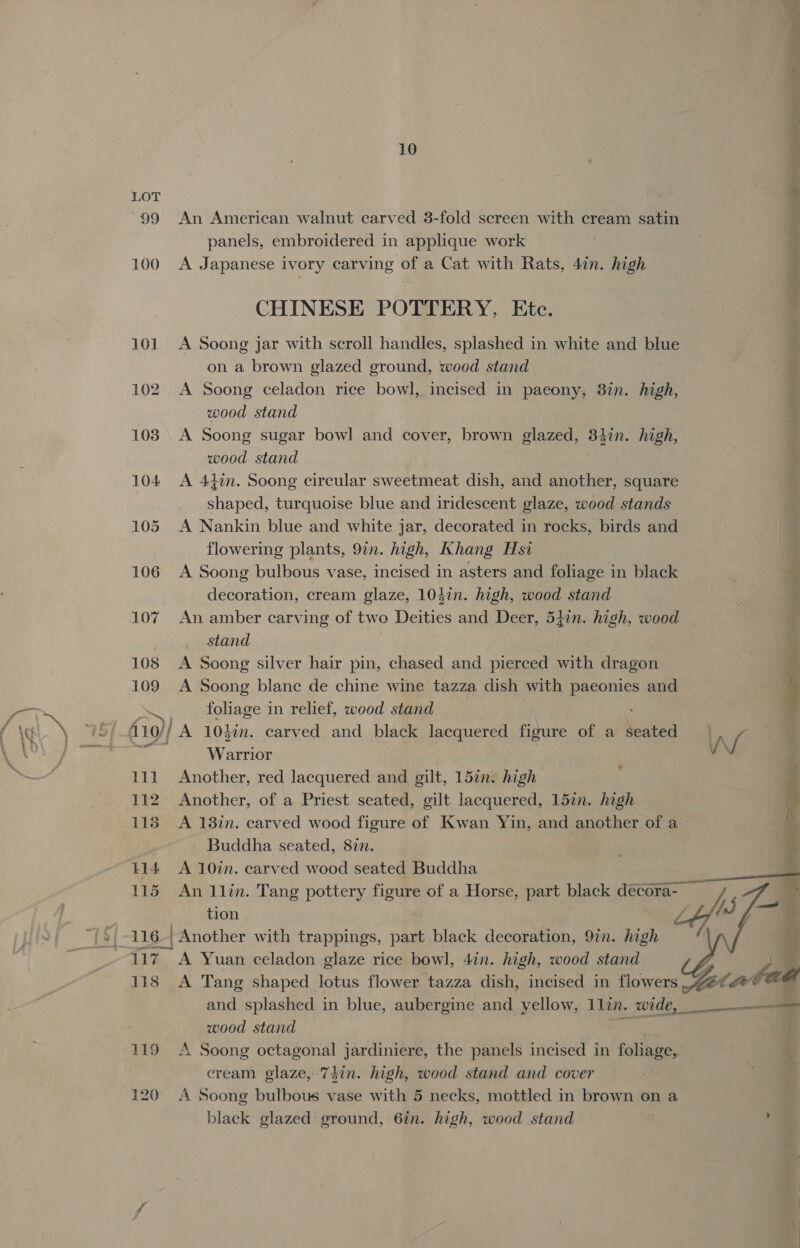 10
LOT
99 An American walnut carved 3-fold screen with cream satin
panels, embroidered in applique work
100 A Japanese ivory carving of a Cat with Rats, 4in. high
CHINESE POTTERY, Etc.
101 A Soong jar with scroll handles, splashed in white and blue
on a brown glazed ground, wood stand
102 A Soong celadon rice bowl, incised in paeony, 3in. high,
wood stand
103 A Soong sugar bowl and cover, brown glazed, 3½in. high,
wood stand
104 A 4½in. Soong circular sweetmeat dish, and another, square
shaped, turquoise blue and iridescent glaze, wood stands
105 A Nankin blue and white jar, decorated in rocks, birds and
flowering plants, 9in. high, Khang Hsi
106 A Soong bulbous vase, incised in asters and foliage in black
decoration, cream glaze, 10½in. high, wood stand
107 An amber carving of two Deities and Deer, 5½in. high, wood
stand
108 A Soong silver hair pin, chased and pierced with dragon
109 A Soong blanc de chine wine tazza dish with paeonies and
foliage in relief, wood stand
110 A 10½in. carved and black lacquered figure of a seated
Warrior
111 Another, red lacquered and gilt, 15in. high
112 Another, of a Priest seated, gilt lacquered, 15in. high
113 A 13in. carved wood figure of Kwan Yin, and another of a
Buddha seated, 8in.
114 A 10in. carved wood seated Buddha
115 An 11in. Tang pottery figure of a Horse, part black decora-
tion
116 Another with trappings, part black decoration, 9in. high
117 A Yuan celadon glaze rice bowl, 4in. high, wood stand
118 A Tang shaped lotus flower tazza dish, incised in flowers
and splashed in blue, aubergine and yellow, 11in. wide,
wood stand
119 A Soong octagonal jardiniere, the panels incised in foliage,
cream glaze, 7½in. high, wood stand and cover
120 A Soong bulbous vase with 5 necks, mottled in brown on a
black glazed ground, 6in. high, wood stand